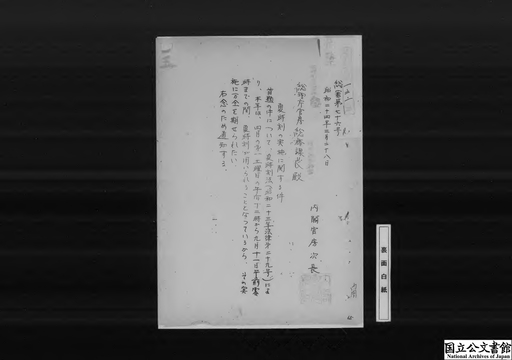 総官第七十六号
昭和二十四年三月二十八日
内閣官房次長
総理庁官房総務課長殿
夏時刻の実施に関する件
首題の件について、夏時刻法(昭和二十三年法律第二十九号)によ
り、本年は、四月の第一土曜日の午后十二時から九月十一日午前零
時までの間、夏時刻が用いられることとなつているから、その実
施に万全を期せられたい
右念のため通知する。
裏面白紙
国立公文書館
National Archives of Japan